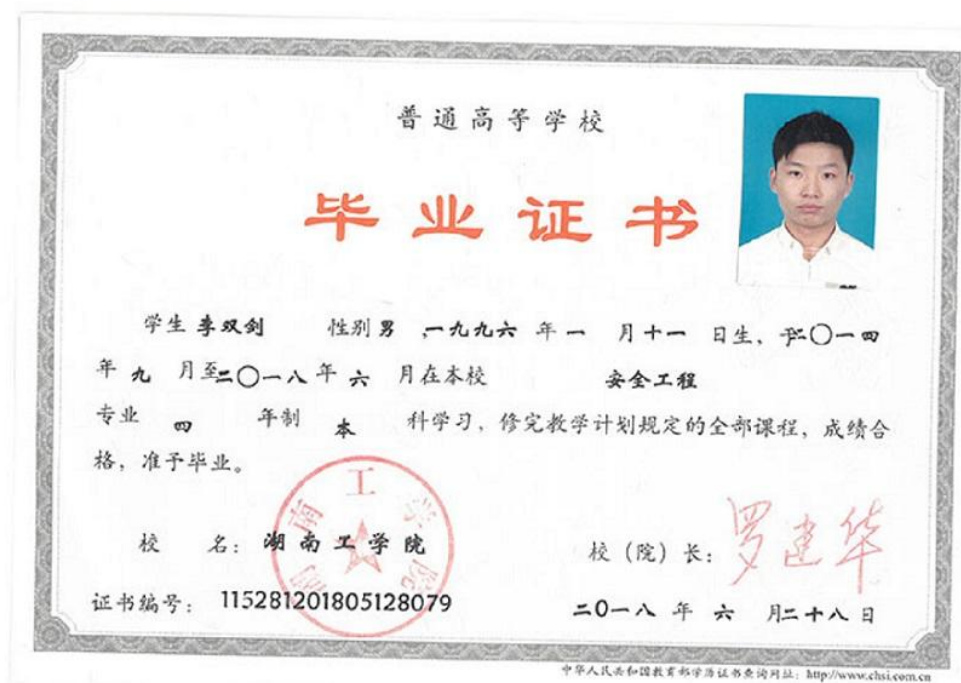 普通高等学校
毕业证书
学生 李双剑 性别 男 ,一九九六 年 一 月 十一 日生, 于二〇一四
年 九 月至二〇一八 年 六 月在本校 安全工程
专业 四 年制 本 科学习, 修完教学计划规定的全部课程, 成绩合
格, 准予毕业。
校 名: 湖南工学院
湖南工学院
校(院)长: 罗建华
证书编号: 115281201805128079
二〇一八 年 六 月二十八 日
中华人民共和国教育部学历证书查询网址: http://www.chsi.com.cn